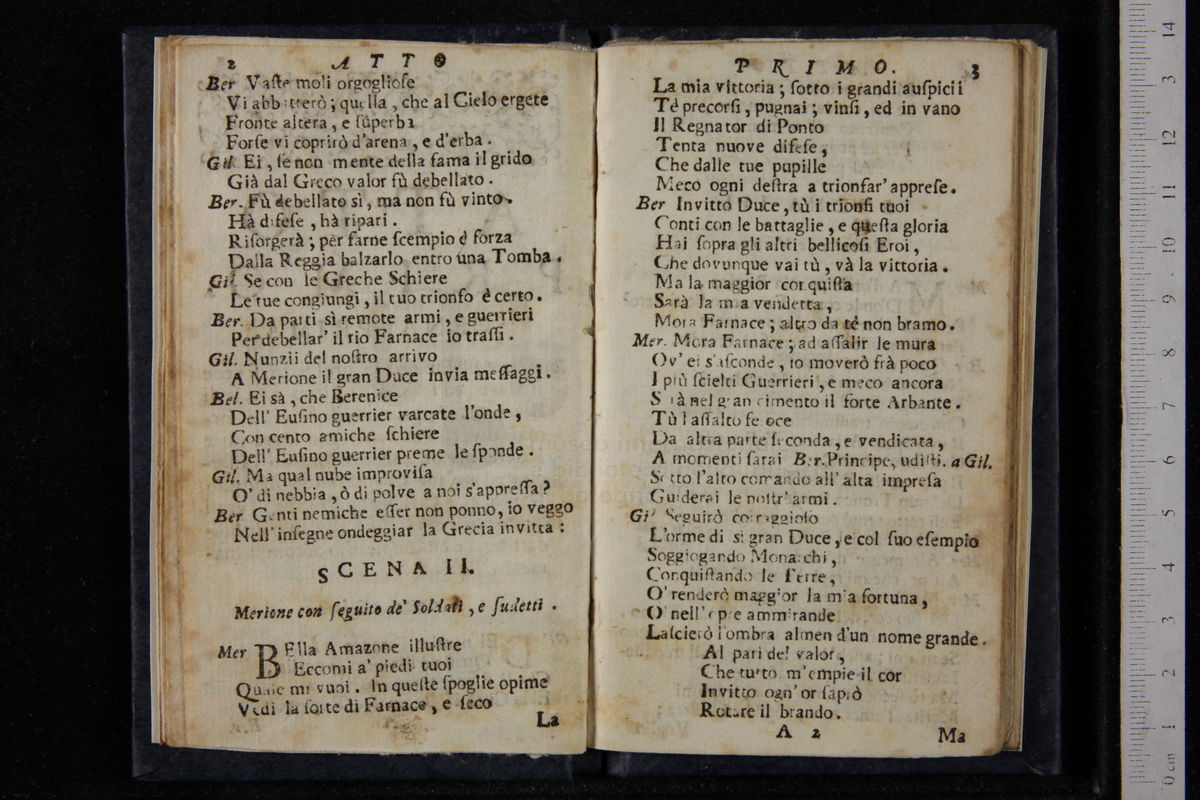 2 ATTO
Ber Vaſte moli orgoglioſe
Vi abbatterò; quella, che al Cielo ergete
Fronte altera, e ſuperba
Forſe vi coprirò d'arena, e d'erba.
Gil Ei, ſe non mente della fama il grido
Già dal Greco valor fù debellato.
Ber. Fù debellato sì, ma non fù vinto.
Hà difeſe, hà ripari.
Riſorgerà; per farne ſcempio è forza
Dalla Reggia balzarlo entro una Tomba.
Gil. Se con le Greche Schiere
Le tue congiungi, il tuo trionfo è certo.
Ber. Da parti sì remote armi, e guerrieri
Per debellar' il rio Farnace io traſſi.
Gil. Nunzii del noſtro arrivo
A Merione il gran Duce invia meſſaggi.
Bel. Ei sà, che Berenice
Dell' Euſino guerrier varcate l'onde,
Con cento amiche ſchiere
Dell' Euſino guerrier preme le ſponde.
Gil. Ma qual nube improviſa
O' di nebbia, ò di polve a noi s'appreſſa?
Ber Genti nemiche eſſer non ponno, io veggo
Nell' inſegne ondeggiar la Grecia invitta:
SCENA II.
Merione con ſeguito de' Soldati, e ſudetti.
Mer BElla Amazone illuſtre
Eccomi a' piedi tuoi
Quale mi vuoi. In queſte ſpoglie opime
Vedi la ſorte di Farnace, e ſeco
La
PRIMO. 3
La mia vittoria; ſotto i grandi auſpicii
Tè precorſi, pugnai; vinſi, ed in vano
Il Regnator di Ponto
Tenta nuove difeſe,
Che dalle tue pupille
Meco ogni deſtra a trionfar' appreſe.
Ber Invitto Duce, tù i trionfi tuoi
Conti con le battaglie, e queſta gloria
Hai ſopra gli altri bellicoſi Eroi,
Che dovunque vai tù, và la vittoria.
Ma la maggior conquiſta
Sarà la mia vendetta,
Mora Farnace; altro da tè non bramo.
Mer. Mora Farnace; ad aſſalir le mura
Ov' ei s'aſconde, io moverò frà poco
I più ſcielti Guerrieri, e meco ancora
Sarà nel gran cimento il forte Arbante.
Tù l'aſſalto feroce
Da altra parte ſeconda, e vendicata,
A momenti ſarai Ber. Principe, udiſti. a Gil.
Sotto l'alto comando all' alta impreſa
Guiderai le noſtr' armi.
Gil Seguirò corraggioſo
L'orme di sì gran Duce, e col ſuo eſempio
Soggiogando Monarchi,
Conquiſtando le Terre,
O' renderò maggior la mia fortuna,
O' nell' opre ammirande
Laſcierò l'ombra almen d'un nome grande.
Al pari del valor,
Che tutto m'empie il cor
Invitto ogn'or ſaprò
Rotare il brando.
A 2 Ma